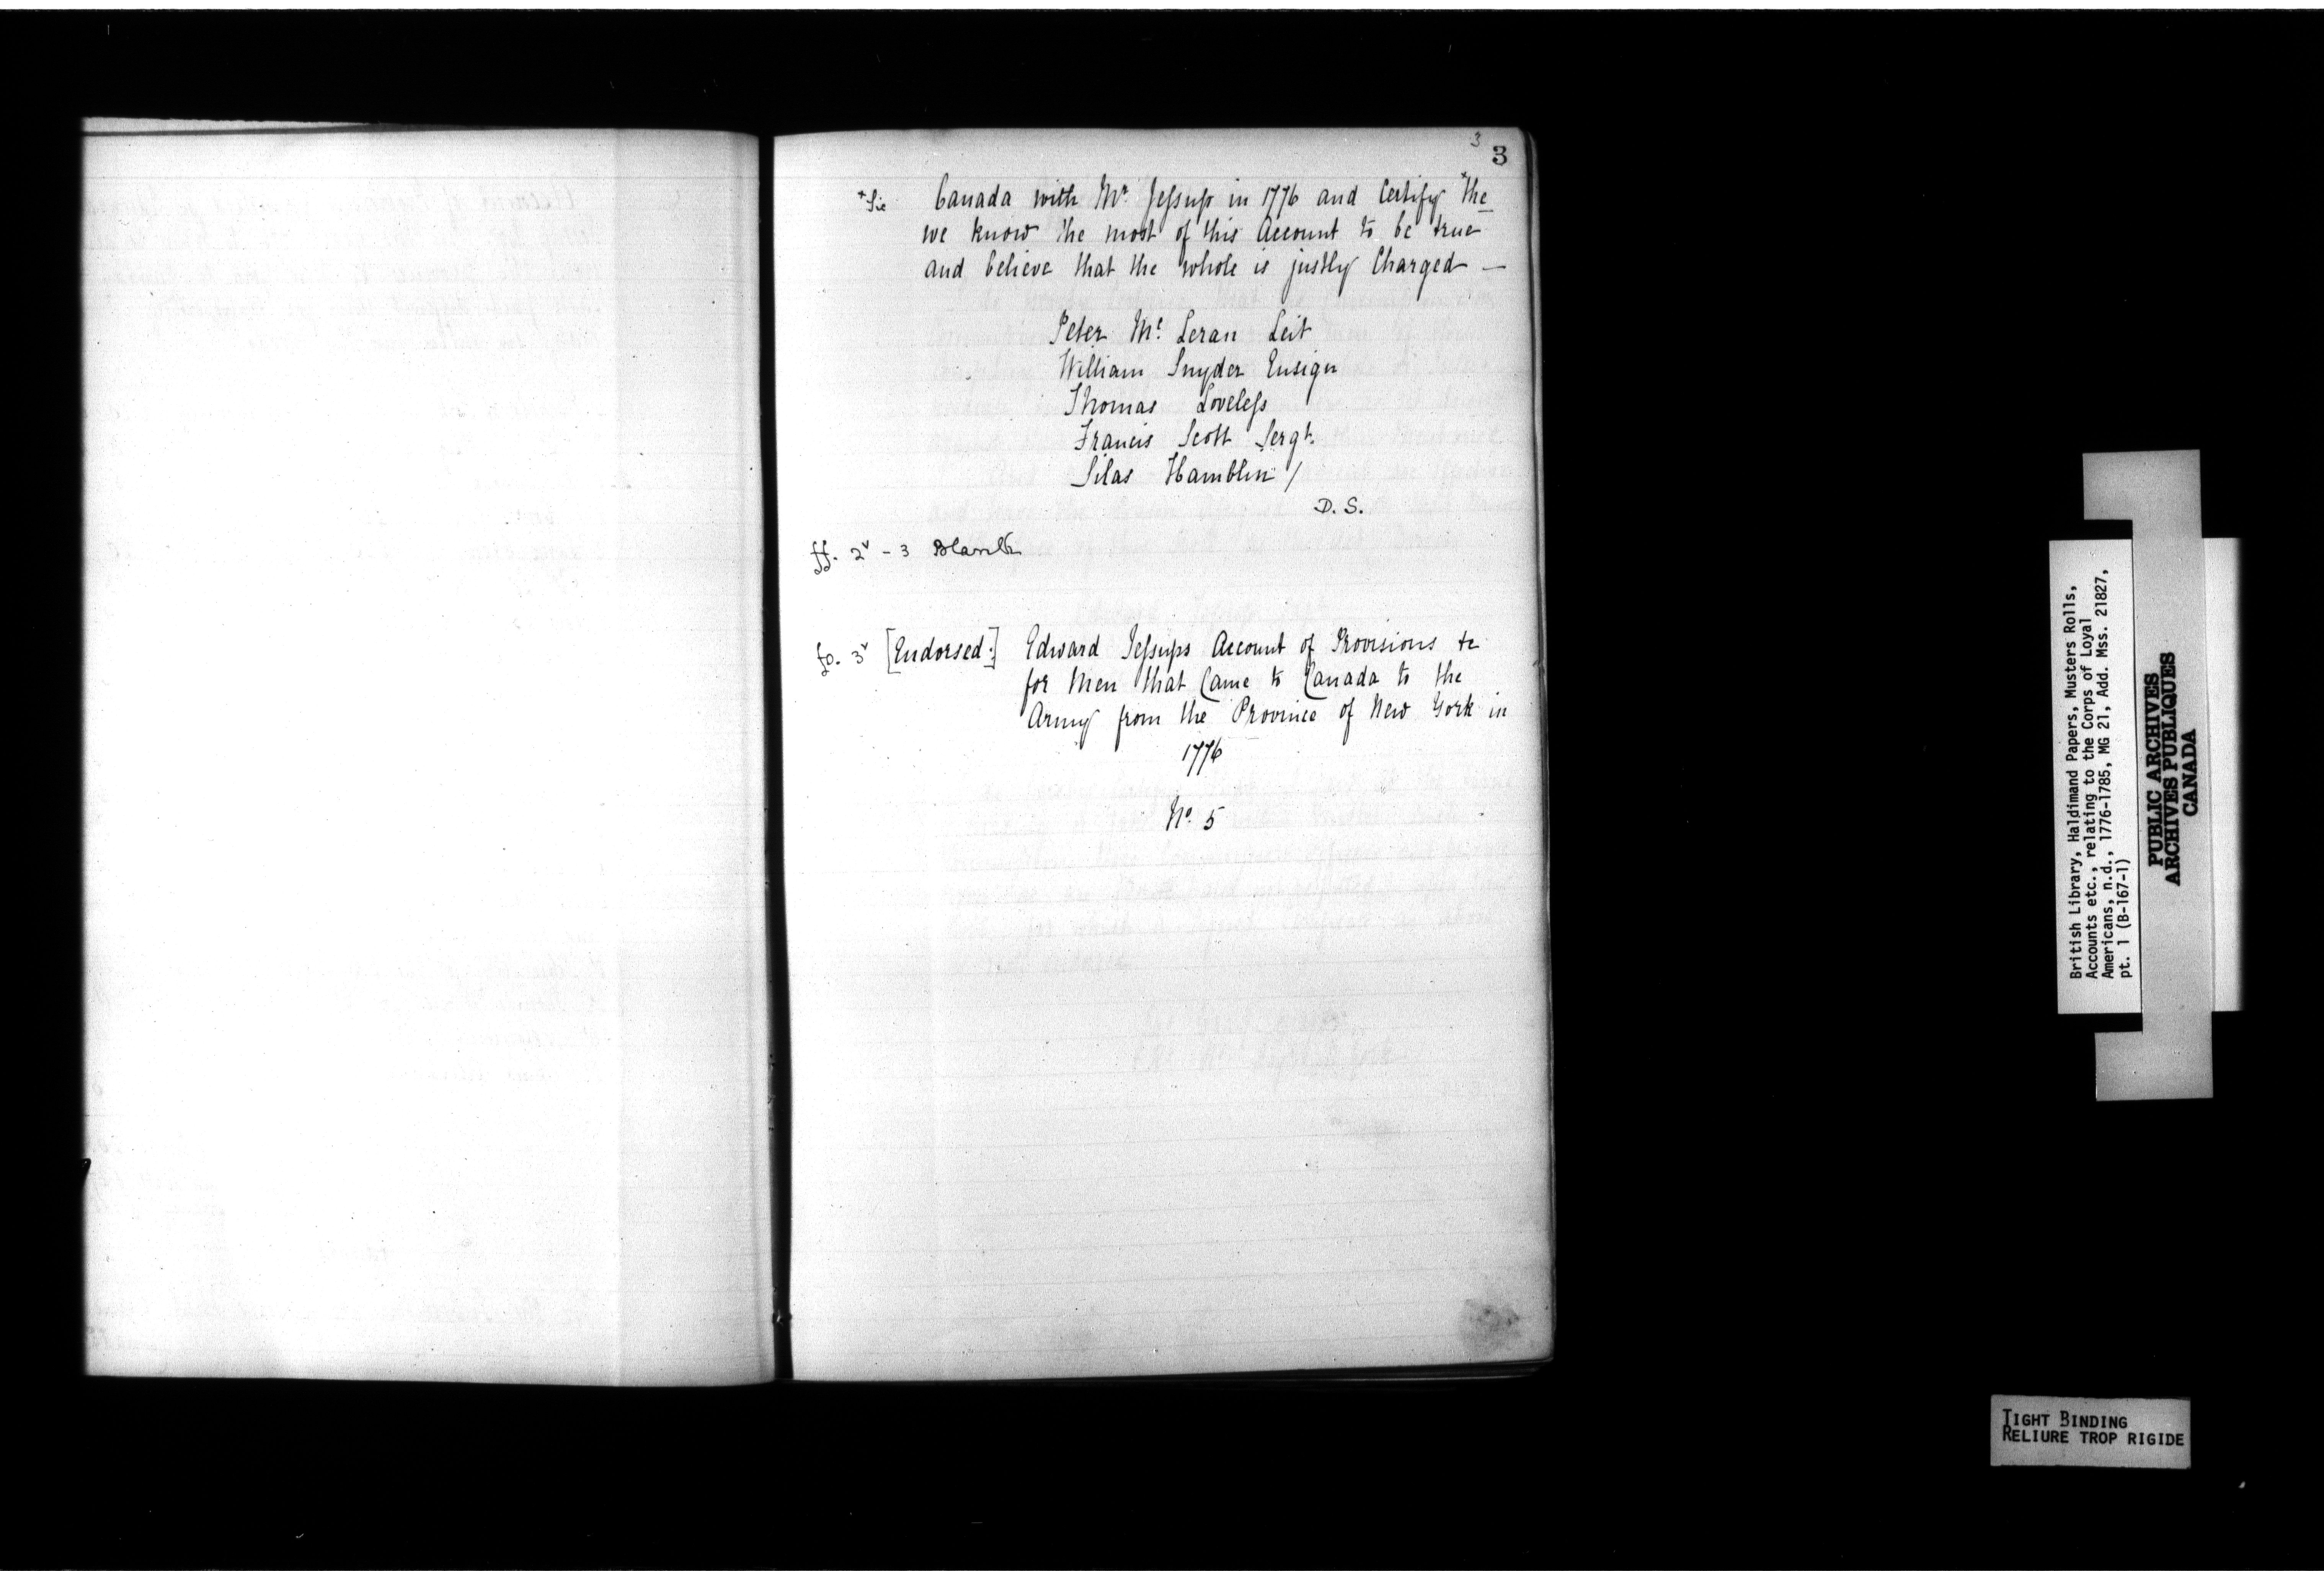 3
3
+Sic Canada with Mr. Jessup in 1776 and Certify +the
we know the most of this Account to be true
and believe that the whole is justly Charged —
Peter Mc Leran Leit
William Snyder Ensign
Thomas Loveless
Francis Scott Sergt.
Silas Hamblin /
D. S.
ff. 2v - 3 Blank
fo. 3v [Endorsed:] Edward Jessups Account of Provisions &c
for Men that Came to Canada to the
Army from the Province of New York in
1776
No. 5
British Library, Haldimand Papers, Musters Rolls,
Accounts etc., relating to the Corps of Loyal
Americans, n.d., 1776-1785, MG 21, Add. Mss. 21827,
pt. 1 (B-167-1)
PUBLIC ARCHIVES
ARCHIVES PUBLIQUES
CANADA
TIGHT BINDING
RELIURE TROP RIGIDE